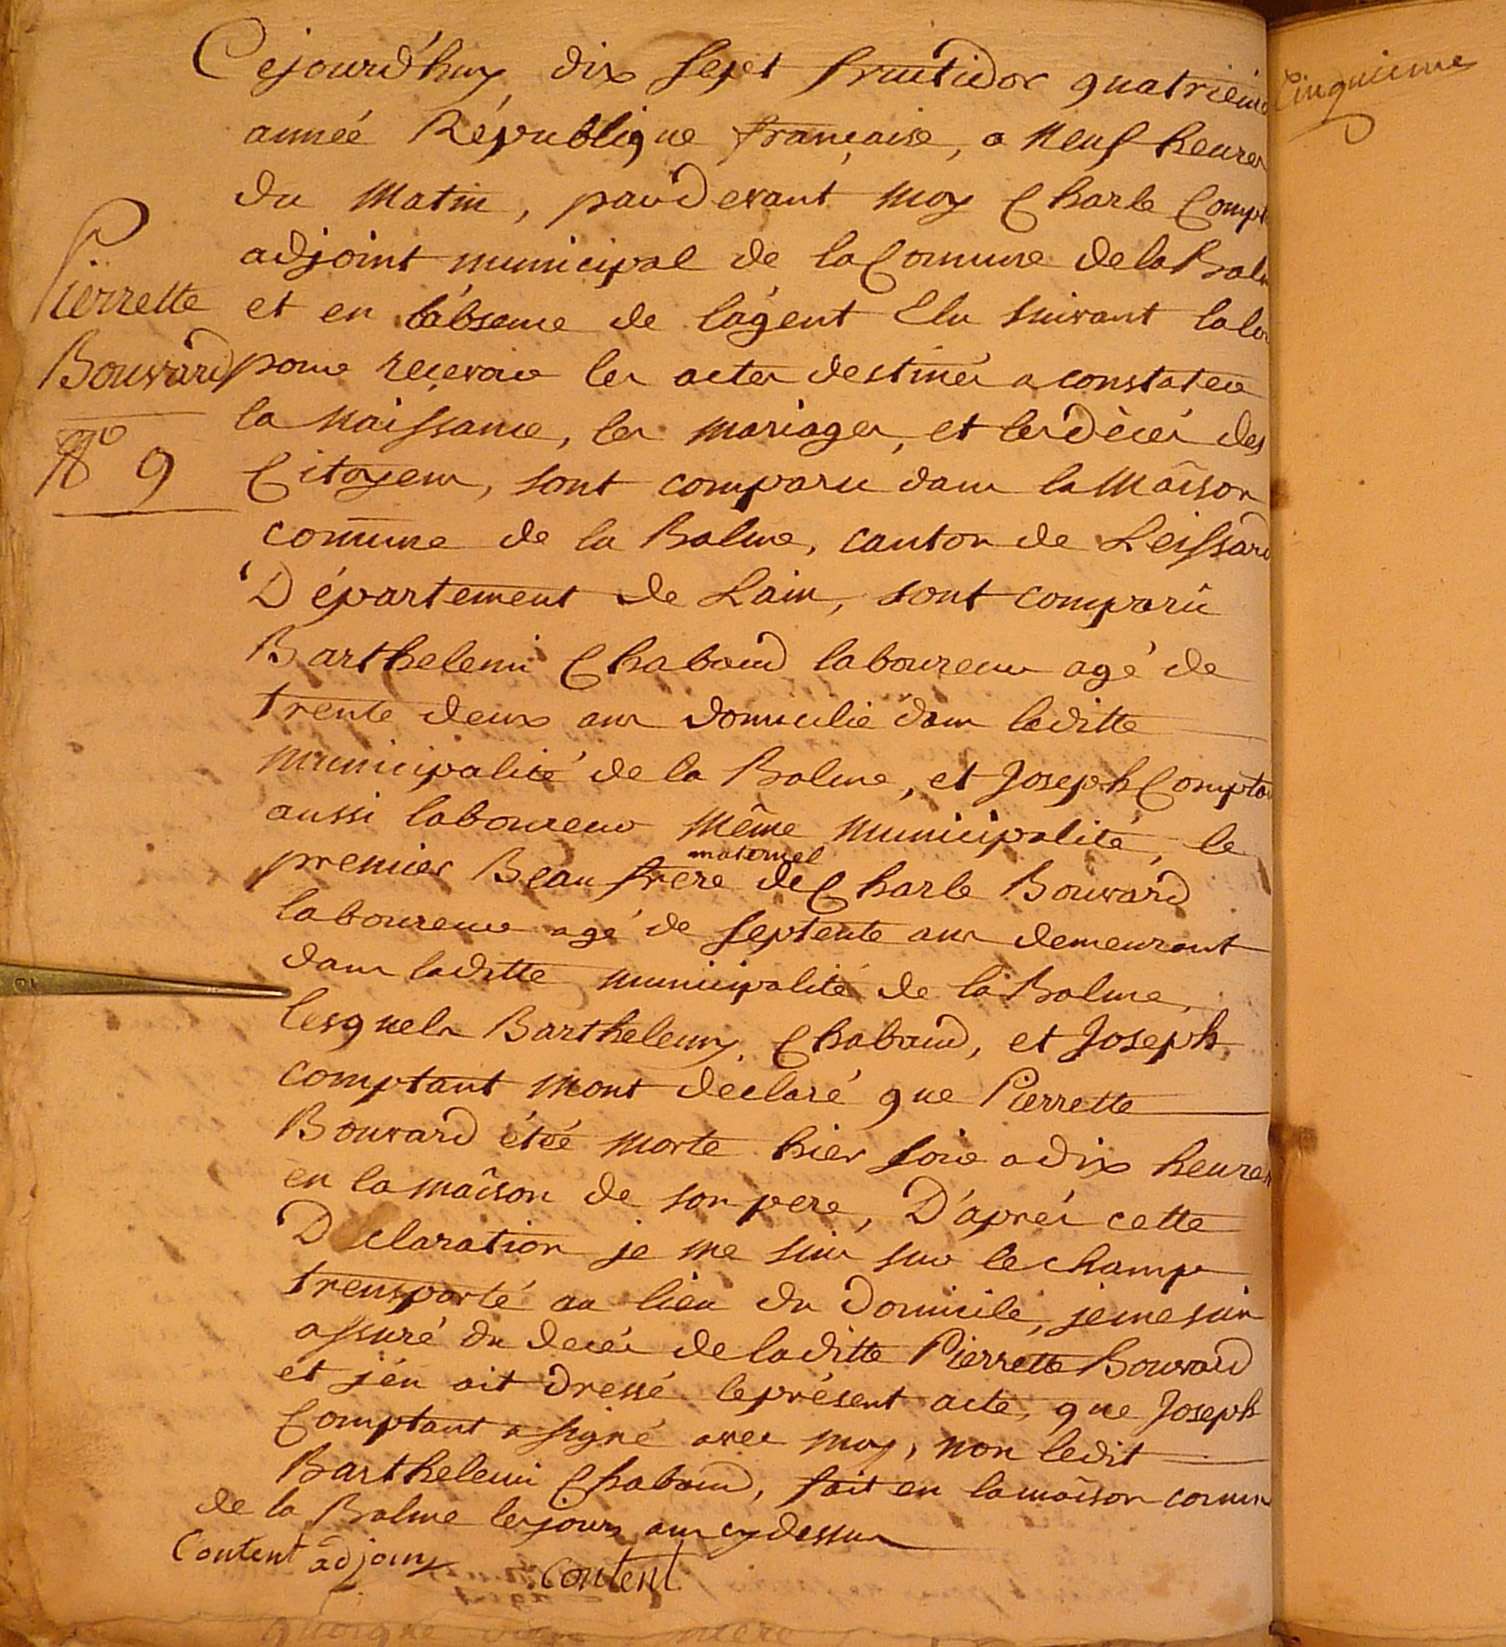 Cejourd'huy dix sept fructidor quatrieme
année République française, a neuf heures
du matin, pardevant moy Charle Compt
adjoint municipal de la Comune de la Balm
et en l'absence de l'agent Elu suivant la loi
pour recevoir les actes destinés a constater
la naissance, les mariages, et les décés des
Citoyens, sont comparu dans la Maison
comune de la Balme, canton de Leissard
Département de Lain, sont comparu
Barthelemi Chabaud laboureur agé de
trente deux ans domicilié dans laditte
municipalité de la Balme, et Joseph Comptan
aussi laboureur même municipalité, le
premier Beau frere maternel de Charle Bouvard
laboureur agé de septente ans demeurant
dans laditte municipalité de la Balme,
lesquels Barthelemy Chabaud, et Joseph
comptant mont declaré que Pierrette
Bouvard été morte hier soir a dix heures
en la maison de son pere, D'après cette
Declaration je me suis sur le champ
transporté au lieu du domicile, je me suis
assuré du decés de laditte Pierrette Bouvard
et j'en ait dressé le présent acte, que Joseph
Comptant a signé avec moy, non ledit
Barthelemi Chabaud, fait en la maison comun
de la Balme les jours an cy dessus
Content adjoint content
Pierrette
Bouvard
N° 9
Cinquieme